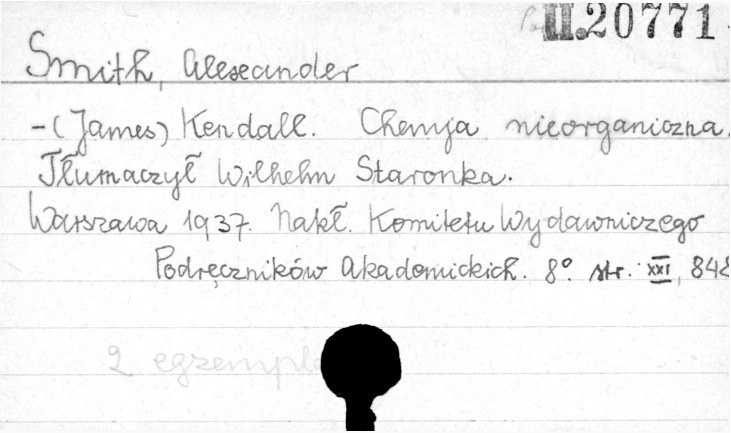 II.20771
Smith, Alexander
-(James) Kendall. Chemja nieorganiczna.
Tłumaczył Wilhelm Staronka.
Warszawa 1937. Nakł. Komitetu Wydawniczego
Podręczników Akademickich. 8° str. XXI, 848
2 egzempl